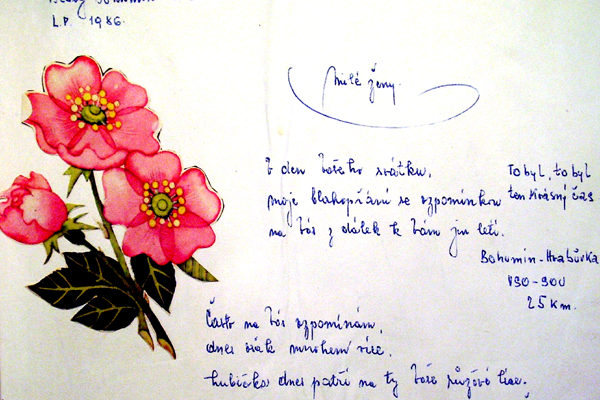 L.P. 1986.
Milé ženy.
V den Vašeho svátku,
moje blahopřání se vzpomínkou
na Vás z dálek k Vám jen letí.
To byl, to byl
ten krásný čas
Bohumín-Hrabůvka
V90-90U
25 km.
Často na Vás vzpomínám,
dnes však mnohem více,
hubička dnes patří na ty Vaše růžové líce.